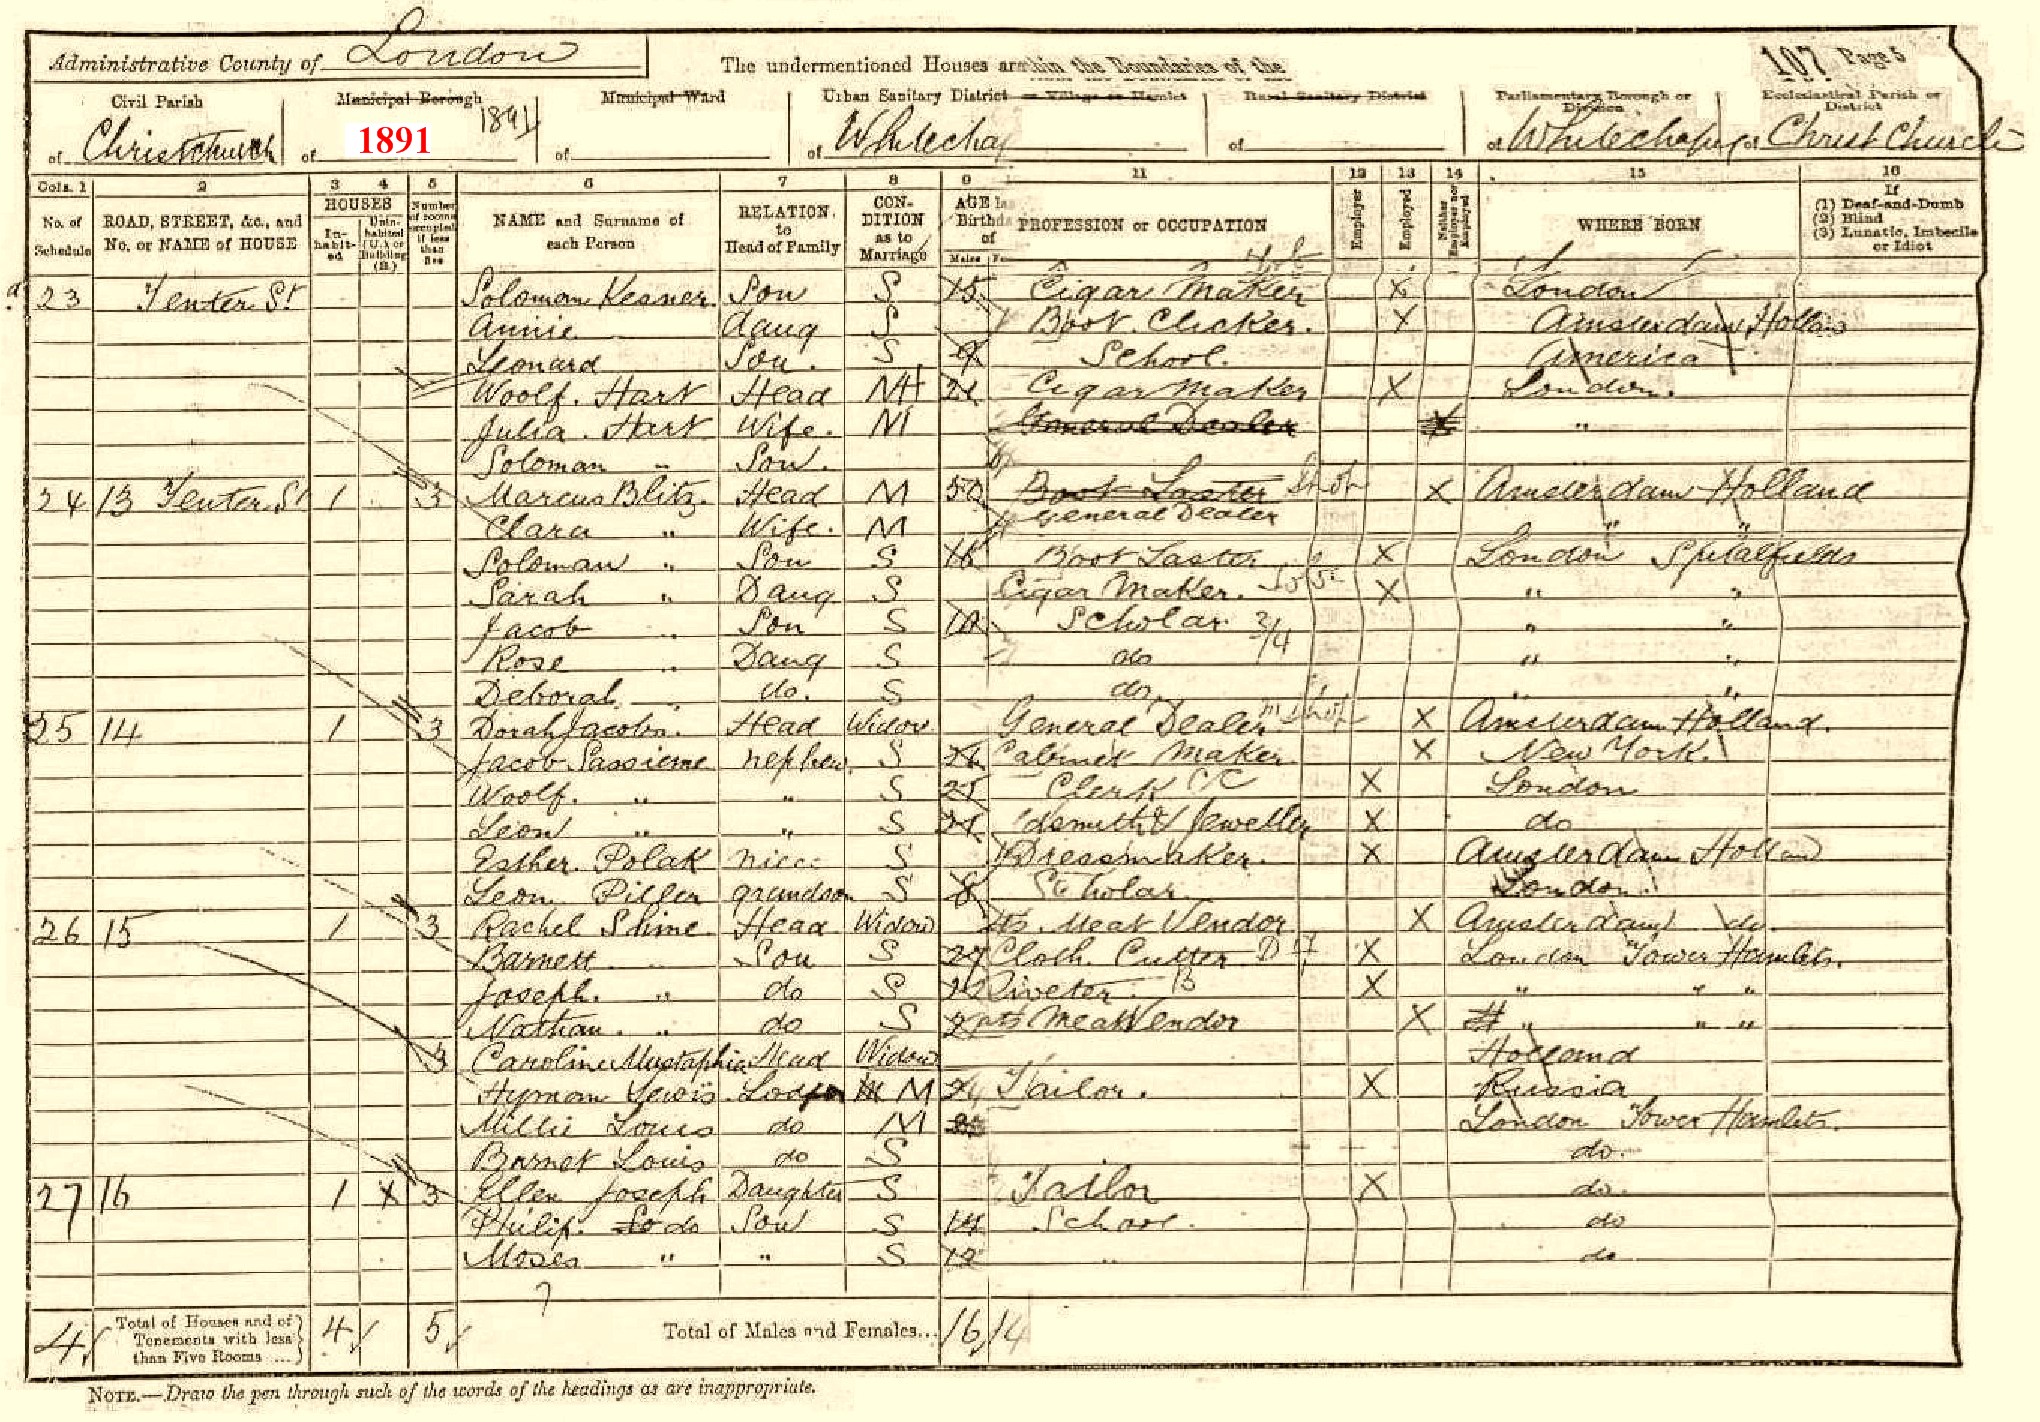 Administrative County of London
The undermentioned Houses are within the Boundaries of the
107 Page 5
Civil Parish of Christchurch
Municipal Borough of 1891 1891
Municipal Ward of
Urban Sanitary District of Whitechap
Village or Hamlet
Rural Sanitary District of
Parliamentary Borough or Division of Whitechapel
Ecclesiastical Parish or District of Christ Church
Cols. 1 2 3 4 5 6 7 8 9 11 12 13 14 15 16
No. of Schedule
ROAD, STREET, &c., and No. or NAME of HOUSE
HOUSES
In-habit-ed
Unin-habited (U.) or Building (B.)
Number of rooms occupied if less than five
NAME and Surname of each Person
RELATION to Head of Family
CON-DITION as to Marriage
AGE las Birthda of
Males Fe
PROFESSION or OCCUPATION
Employer
Employed
Neither Employer nor Employed
WHERE BORN
If (1) Deaf-and-Dumb (2) Blind (3) Lunatic, Imbecile or Idiot
23 Tenter St Soloman Kesner Son S 15 Cigar Maker X London
Annie daug S Boot Clicker. X Amsterdam Holland
Leonard Son. S 9 School. America
Woolf. Hart Head M 21 Cigar Maker X London.
Julia. Hart Wife. M General Dealer X "
Soloman " Son.
24 13 Tenter St 1 3 Marcus Blitz. Head M 50 Boot Laster X Amsterdam Holland
General Dealer
Clara " Wife. M " "
Soloman " Son S 16 Boot Laster X London Spitalfields
Sarah " Daug S Cigar Maker. X " "
Jacob " Son S 10 Scholar 2/4 " "
Rose " Daug S do " "
Deborah " do. S do. " "
25 14 1 3 Dorah Jacobs. Head Widow General Dealer X Amsterdam Holland.
Jacob Sassieme nephew S Cabinet Maker X New York.
Woolf. " " S 25 Clerk CC X London
Leon " " S 21 ldsmith & Jeweller X do
Esther. Polak niece S Dressmaker. X Amsterdam Holland
Leon Piller grandson S 8 Scholar. London.
26 15 1 3 Rachel Shine. Head Widow ts. Meat Vendor X Amsterdam do.
Barnett " Son S 27 Cloth Cutter X London Tower Hamlets.
Joseph. " do S 22 Riveter. B X " " "
Nathan. " do S ats Meat Vendor X " " "
3 Caroline Mustaphia Head Widow Holland
Hyman Lewis Lodger M 24 Tailor. X Russia
Millie Louis do M London Tower Hamlets.
Barnet Louis do S do.
27 16 1 X 3 Ellen Joseph Daughter S Tailor X do.
Philip. do Son S 14 School. do
Moses " " S 12 " do
7
4 Total of Houses and of Tenements with less than Five Rooms ... 4 5 Total of Males and Females... 16 14
NOTE.—Draw the pen through such of the words of the headings as are inappropriate.